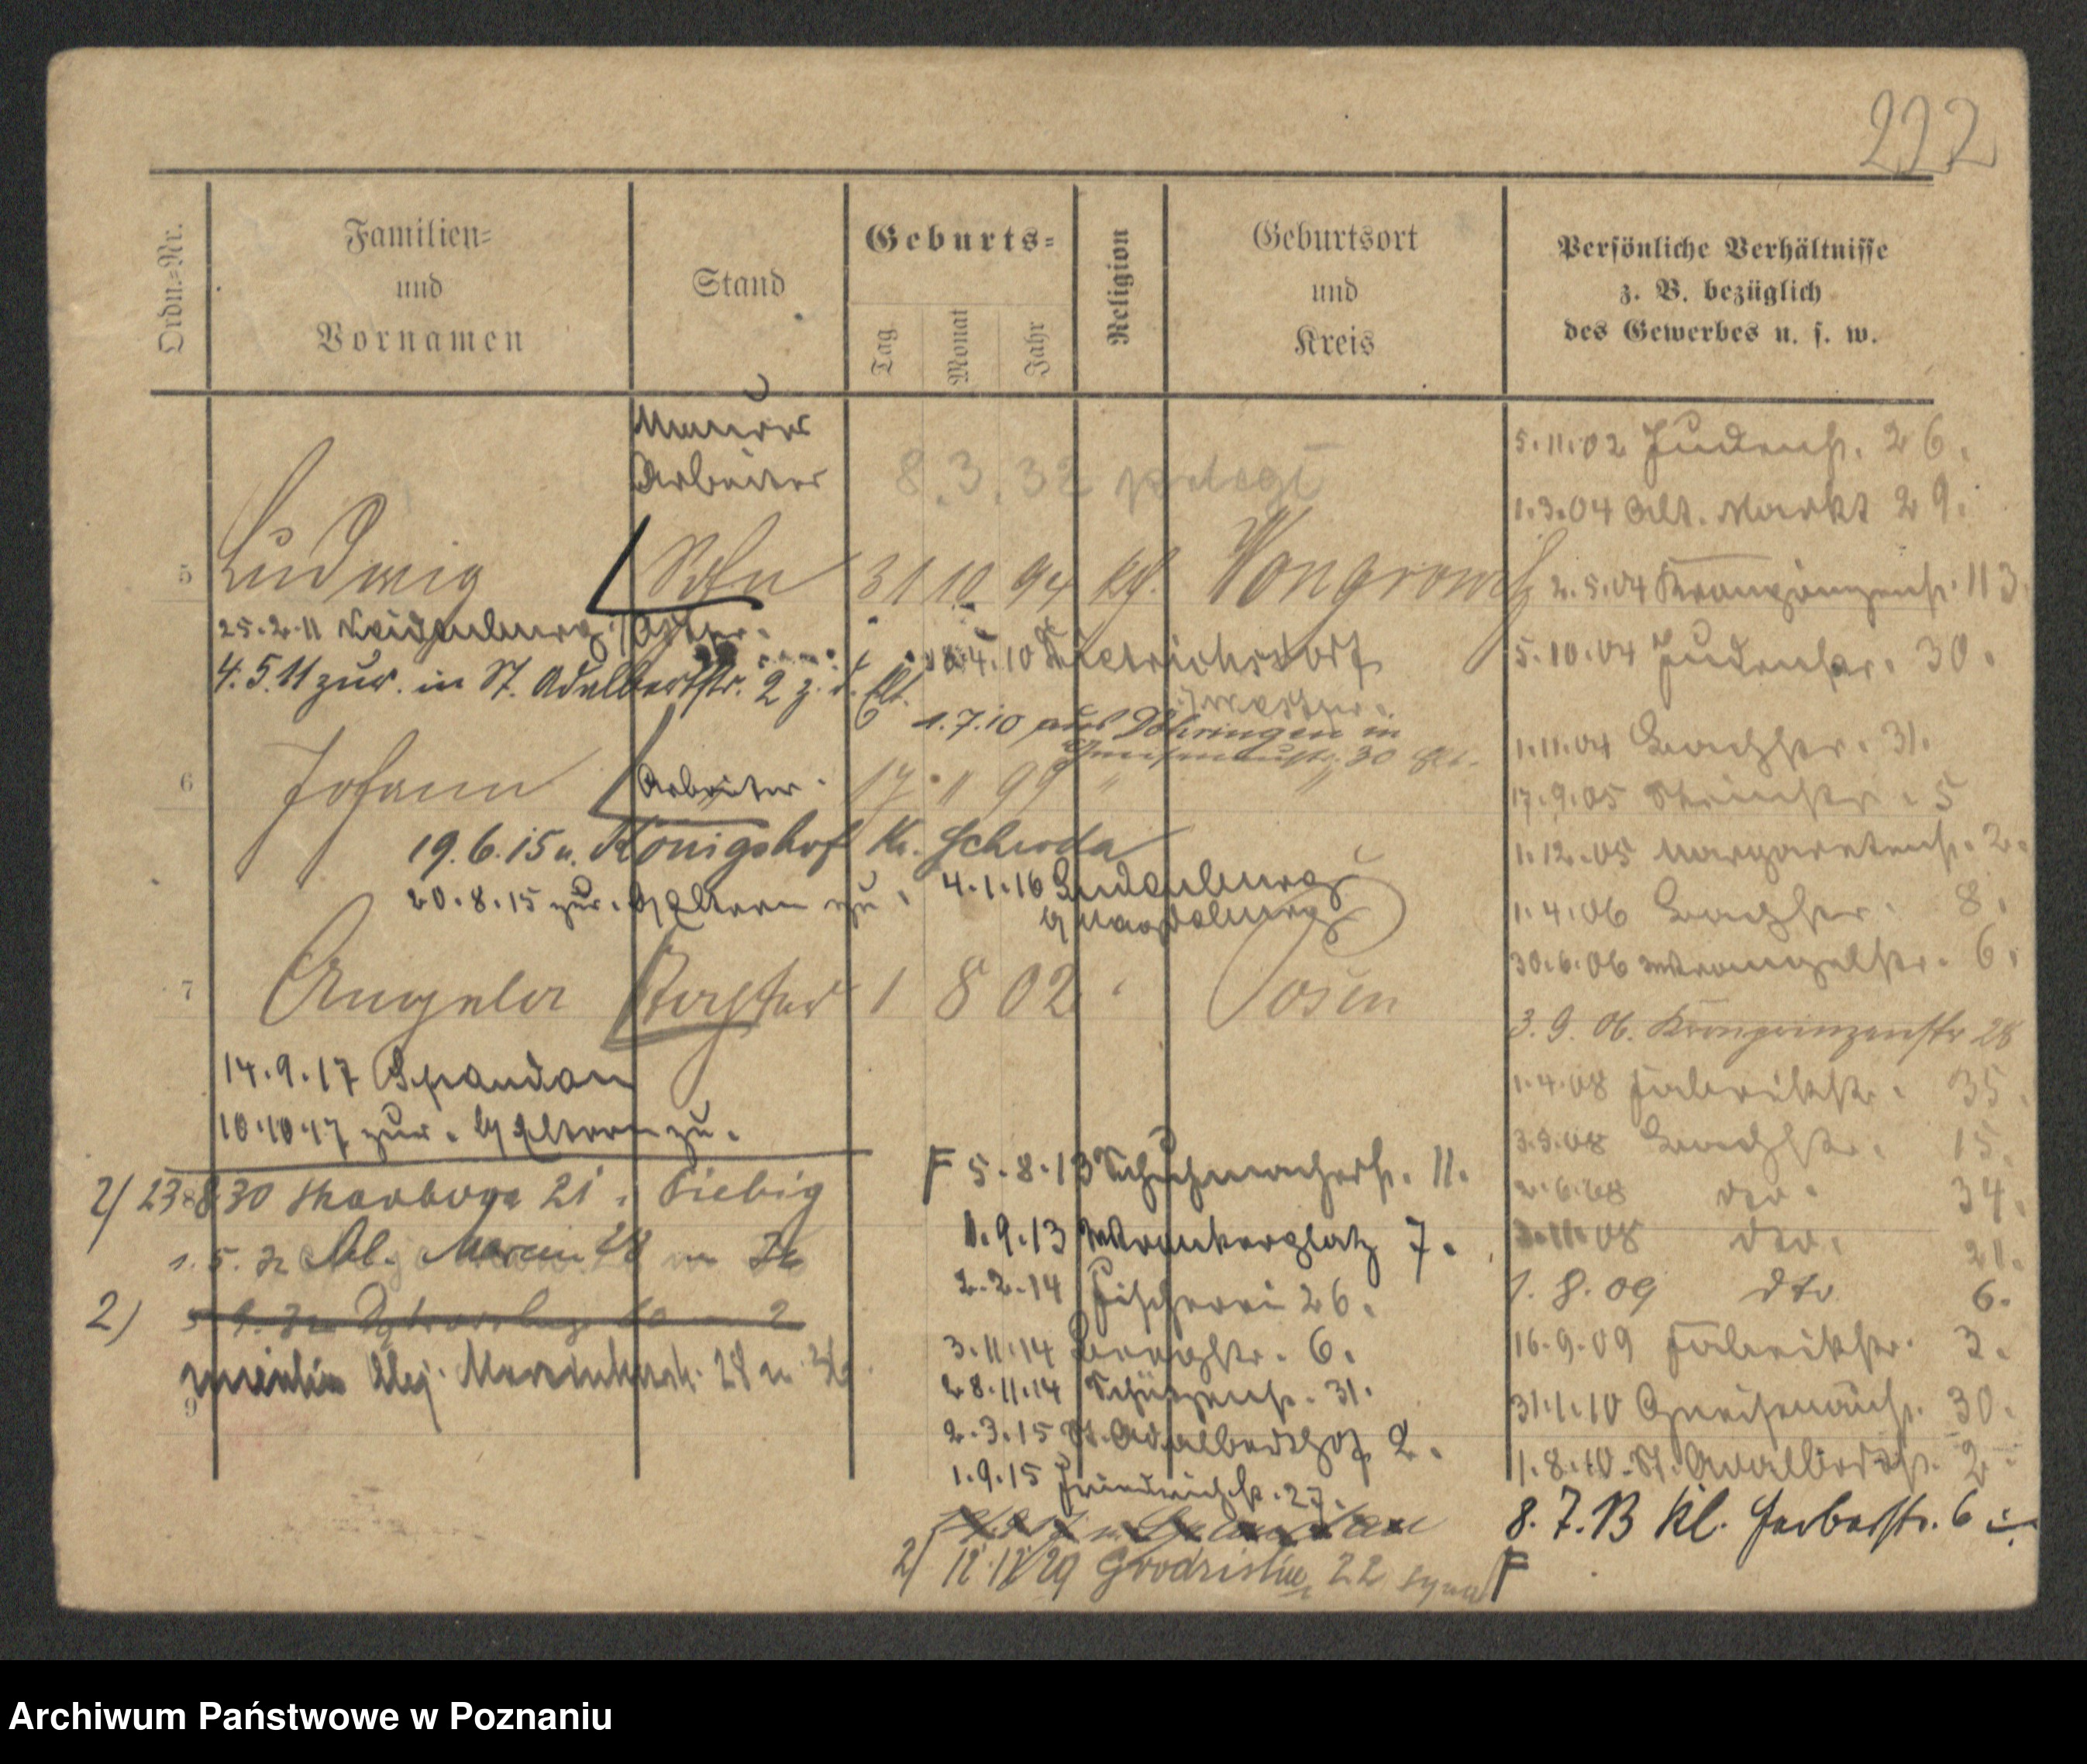 222
Ordn.=Nr.
Familien=
und
Vornamen
Stand
Geburts=
Tag
Monat
Jahr
Religion
Geburtsort
und
Kreis
Persönliche Verhältnisse
z. B. bezüglich
des Gewerbes u. s. w.
Maurer
Arbeiter
8.3.32
5 Ludwig Sohn 31 10 94 kth. Wongrowitz
25.2.11
4.5.11 zur. in St. Adalbertstr. 2 z. d. Elt.
4.10 Dietrichsdorf
1.7.10 aus Döhringen in
Gneisenaustr. 30
6 Johann Arbeiter 17 11 99 " "
19.6.15 n. Königshof Kr. Schroda
20.8.15 zur. Eltern zu.
4.1.16
b/ Magdeburg
7 Angela Tochter 1 8 02 " Posen
14.9.17 Spandau
10.10.17 zur. b/ Eltern zu.
2/ 23.8.30 Skarboga 21 Fiebig
1.5.32 Al. Marcin 28 m
2)
28 m
9
F 5.8.13 Schuhmacherstr. 11.
1.9.13 Wronkerplatz 7.
2.2.14 Fischerei 26.
3.11.14 Bergstr. 6.
28.11.14 Schützenstr. 31.
2.3.15 St. Adalberthof 2.
1.9.15 Friedrichstr. 27.
2/ 12.12.29 Grodziska 22
5.11.02 Judenstr. 26.
1.3.04 Alt. Markt 29.
2.5.04 Kronprinzenstr. 113.
5.10.04 Judenstr. 30.
1.11.04 Bachstr. 31.
17.9.05 5
1.12.05 Margaretenstr. 2.
1.4.06 Bachstr. 8.
30.6.06 Wrangelstr. 6.
3.9.06. Kronprinzenstr 28
1.4.08 Fabrikstr. 35.
3.5.08 Bachstr. 15.
2.6.08 dto. 34.
08 dto. 21.
1.8.09 dto 6.
16.9.09 Fabrikstr. 3.
31.1.10 Gneisenaustr. 30.
1.8.10. St. Adalbertstr. 2
8.7.13 Kl. Gerberstr. 6
F
Archiwum Państwowe w Poznaniu